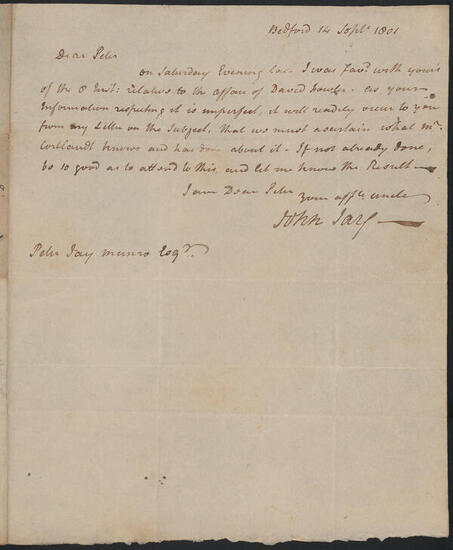 Bedford 14 Sept. 1801
Dear Peter
on Saturday Evening last I was favd. with yours
of the 8 Inst: relative to the affair of David Fowler. as your
Information respecting it is imperfect, it will readily occur to you
from my Letter on the Subject, that we must ascertain what Mr.
Cortlandt knows and has done about it - If not already done,
be so good as to attend to this, and let me know the Result -
I am Dear Peter
your affte. uncle
John Jay
Peter Jay Munro Esqr.